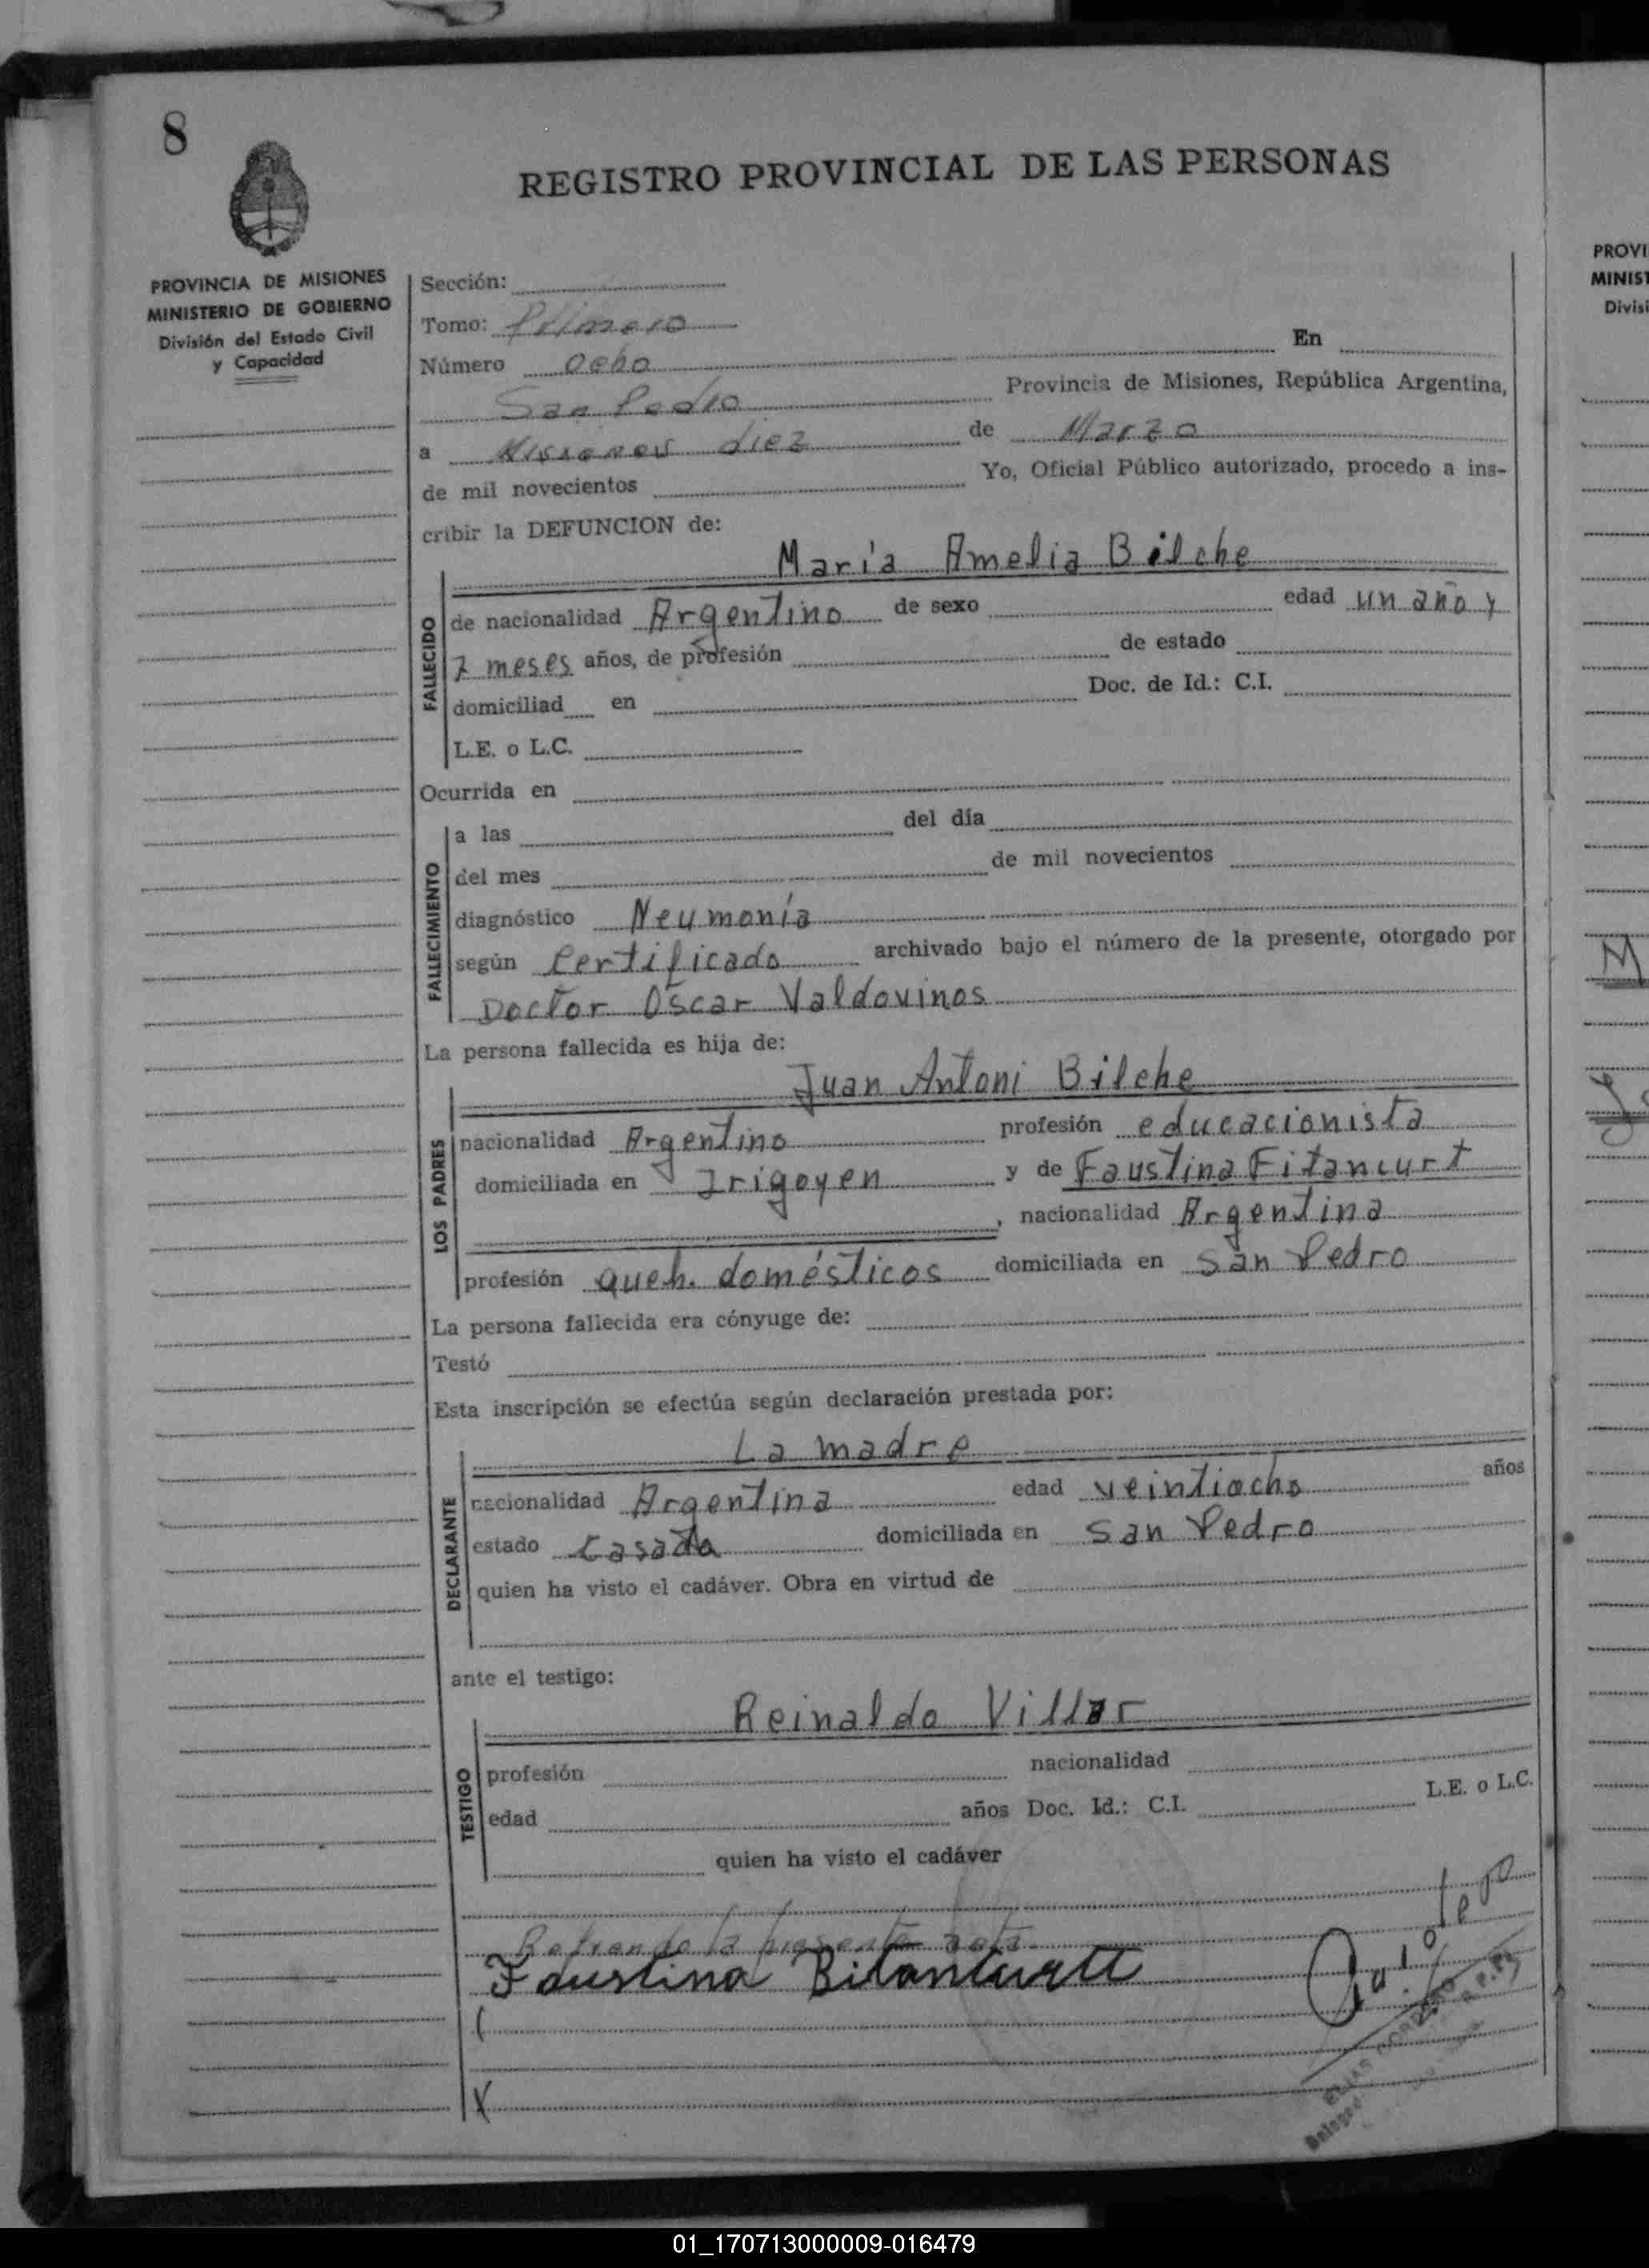 8
REGISTRO PROVINCIAL DE LAS PERSONAS
PROVINCIA DE MISIONES
MINISTERIO DE GOBIERNO
División del Estado Civil
y Capacidad
Sección:
Tomo: Primero
Número ocho En
San Pedro Provincia de Misiones, República Argentina,
a Misiones diez de Marzo
de mil novecientos Yo, Oficial Público autorizado, procedo a ins-
cribir la DEFUNCION de:
María Amelia Bilche
FALLECIDO
de nacionalidad Argentino de sexo edad un año y
7 meses años, de profesión de estado
domiciliad en Doc. de Id.: C.I.
L.E. o L.C.
Ocurrida en
FALLECIMIENTO
a las del día
del mes de mil novecientos
diagnóstico Neumonía
según Certificado archivado bajo el número de la presente, otorgado por
Doctor Oscar Valdovinos
La persona fallecida es hija de:
Juan Antoni Bilche
LOS PADRES
nacionalidad Argentino profesión educacionista
domiciliada en Irigoyen y de Faustina Fitancurt
, nacionalidad Argentina
profesión queh. domésticos domiciliada en San Pedro
La persona fallecida era cónyuge de:
Testó
Esta inscripción se efectúa según declaración prestada por:
La madre
DECLARANTE
nacionalidad Argentina edad veintiocho años
estado Casada domiciliada en San Pedro
quien ha visto el cadáver. Obra en virtud de
ante el testigo:
Reinaldo Villar
TESTIGO
profesión nacionalidad
edad años Doc. Id.: C.I. L.E. o L.C.
quien ha visto el cadáver
Refrendo la presente acta
Faustina Bitancurtt
PROVI
MINIST
Divisi
01_170713000009-016479